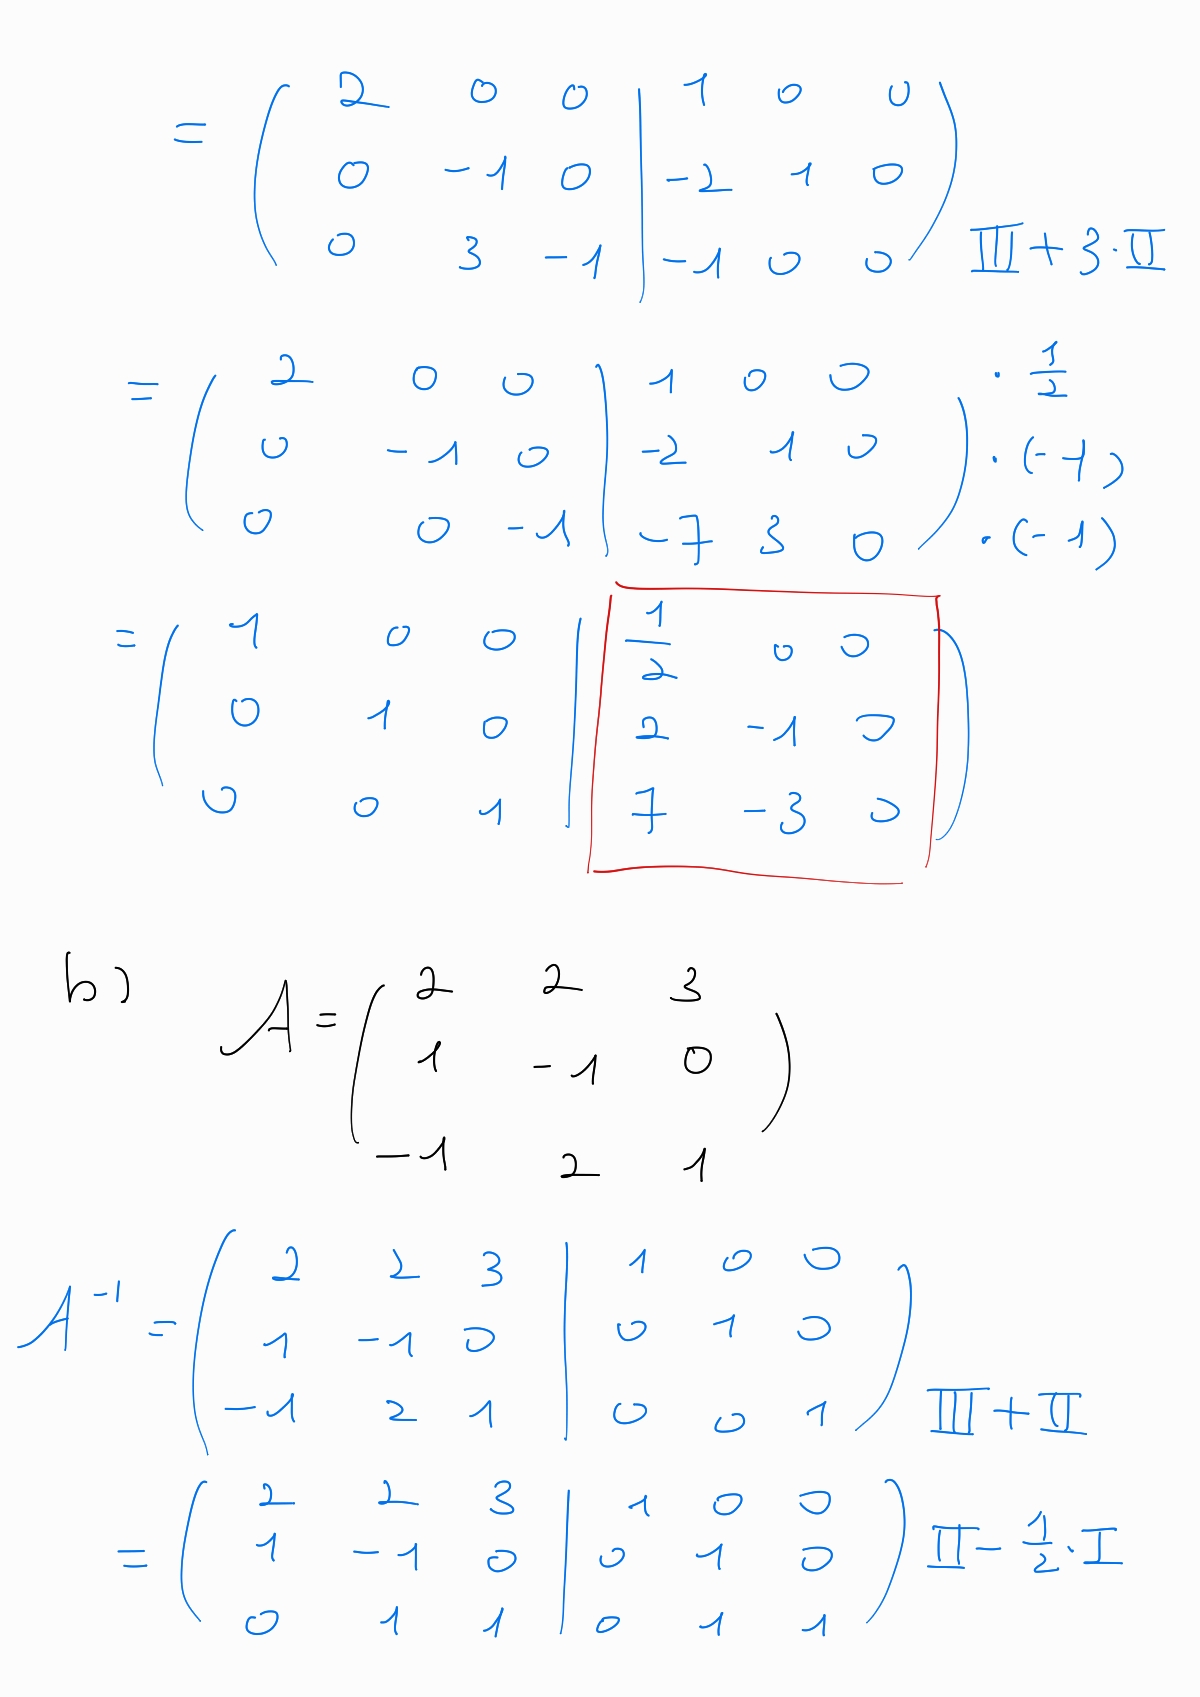 = ( 2 0 0 | 1 0 0
0 -1 0 | -2 1 0
0 3 -1 | -1 0 0 ) III + 3·II
= ( 2 0 0 | 1 0 0 · 1/2
0 -1 0 | -2 1 0 ) · (-1)
0 0 -1 | -7 3 0 · (-1)
= ( 1 0 0 | 1/2 0 0
0 1 0 | 2 -1 0
0 0 1 | 7 -3 0 )
b) A = ( 2 2 3
1 -1 0
-1 2 1 )
A⁻¹ = ( 2 2 3 | 1 0 0
1 -1 0 | 0 1 0
-1 2 1 | 0 0 1 ) III + II
= ( 2 2 3 | 1 0 0
1 -1 0 | 0 1 0 ) II - 1/2 · I
0 1 1 | 0 1 1